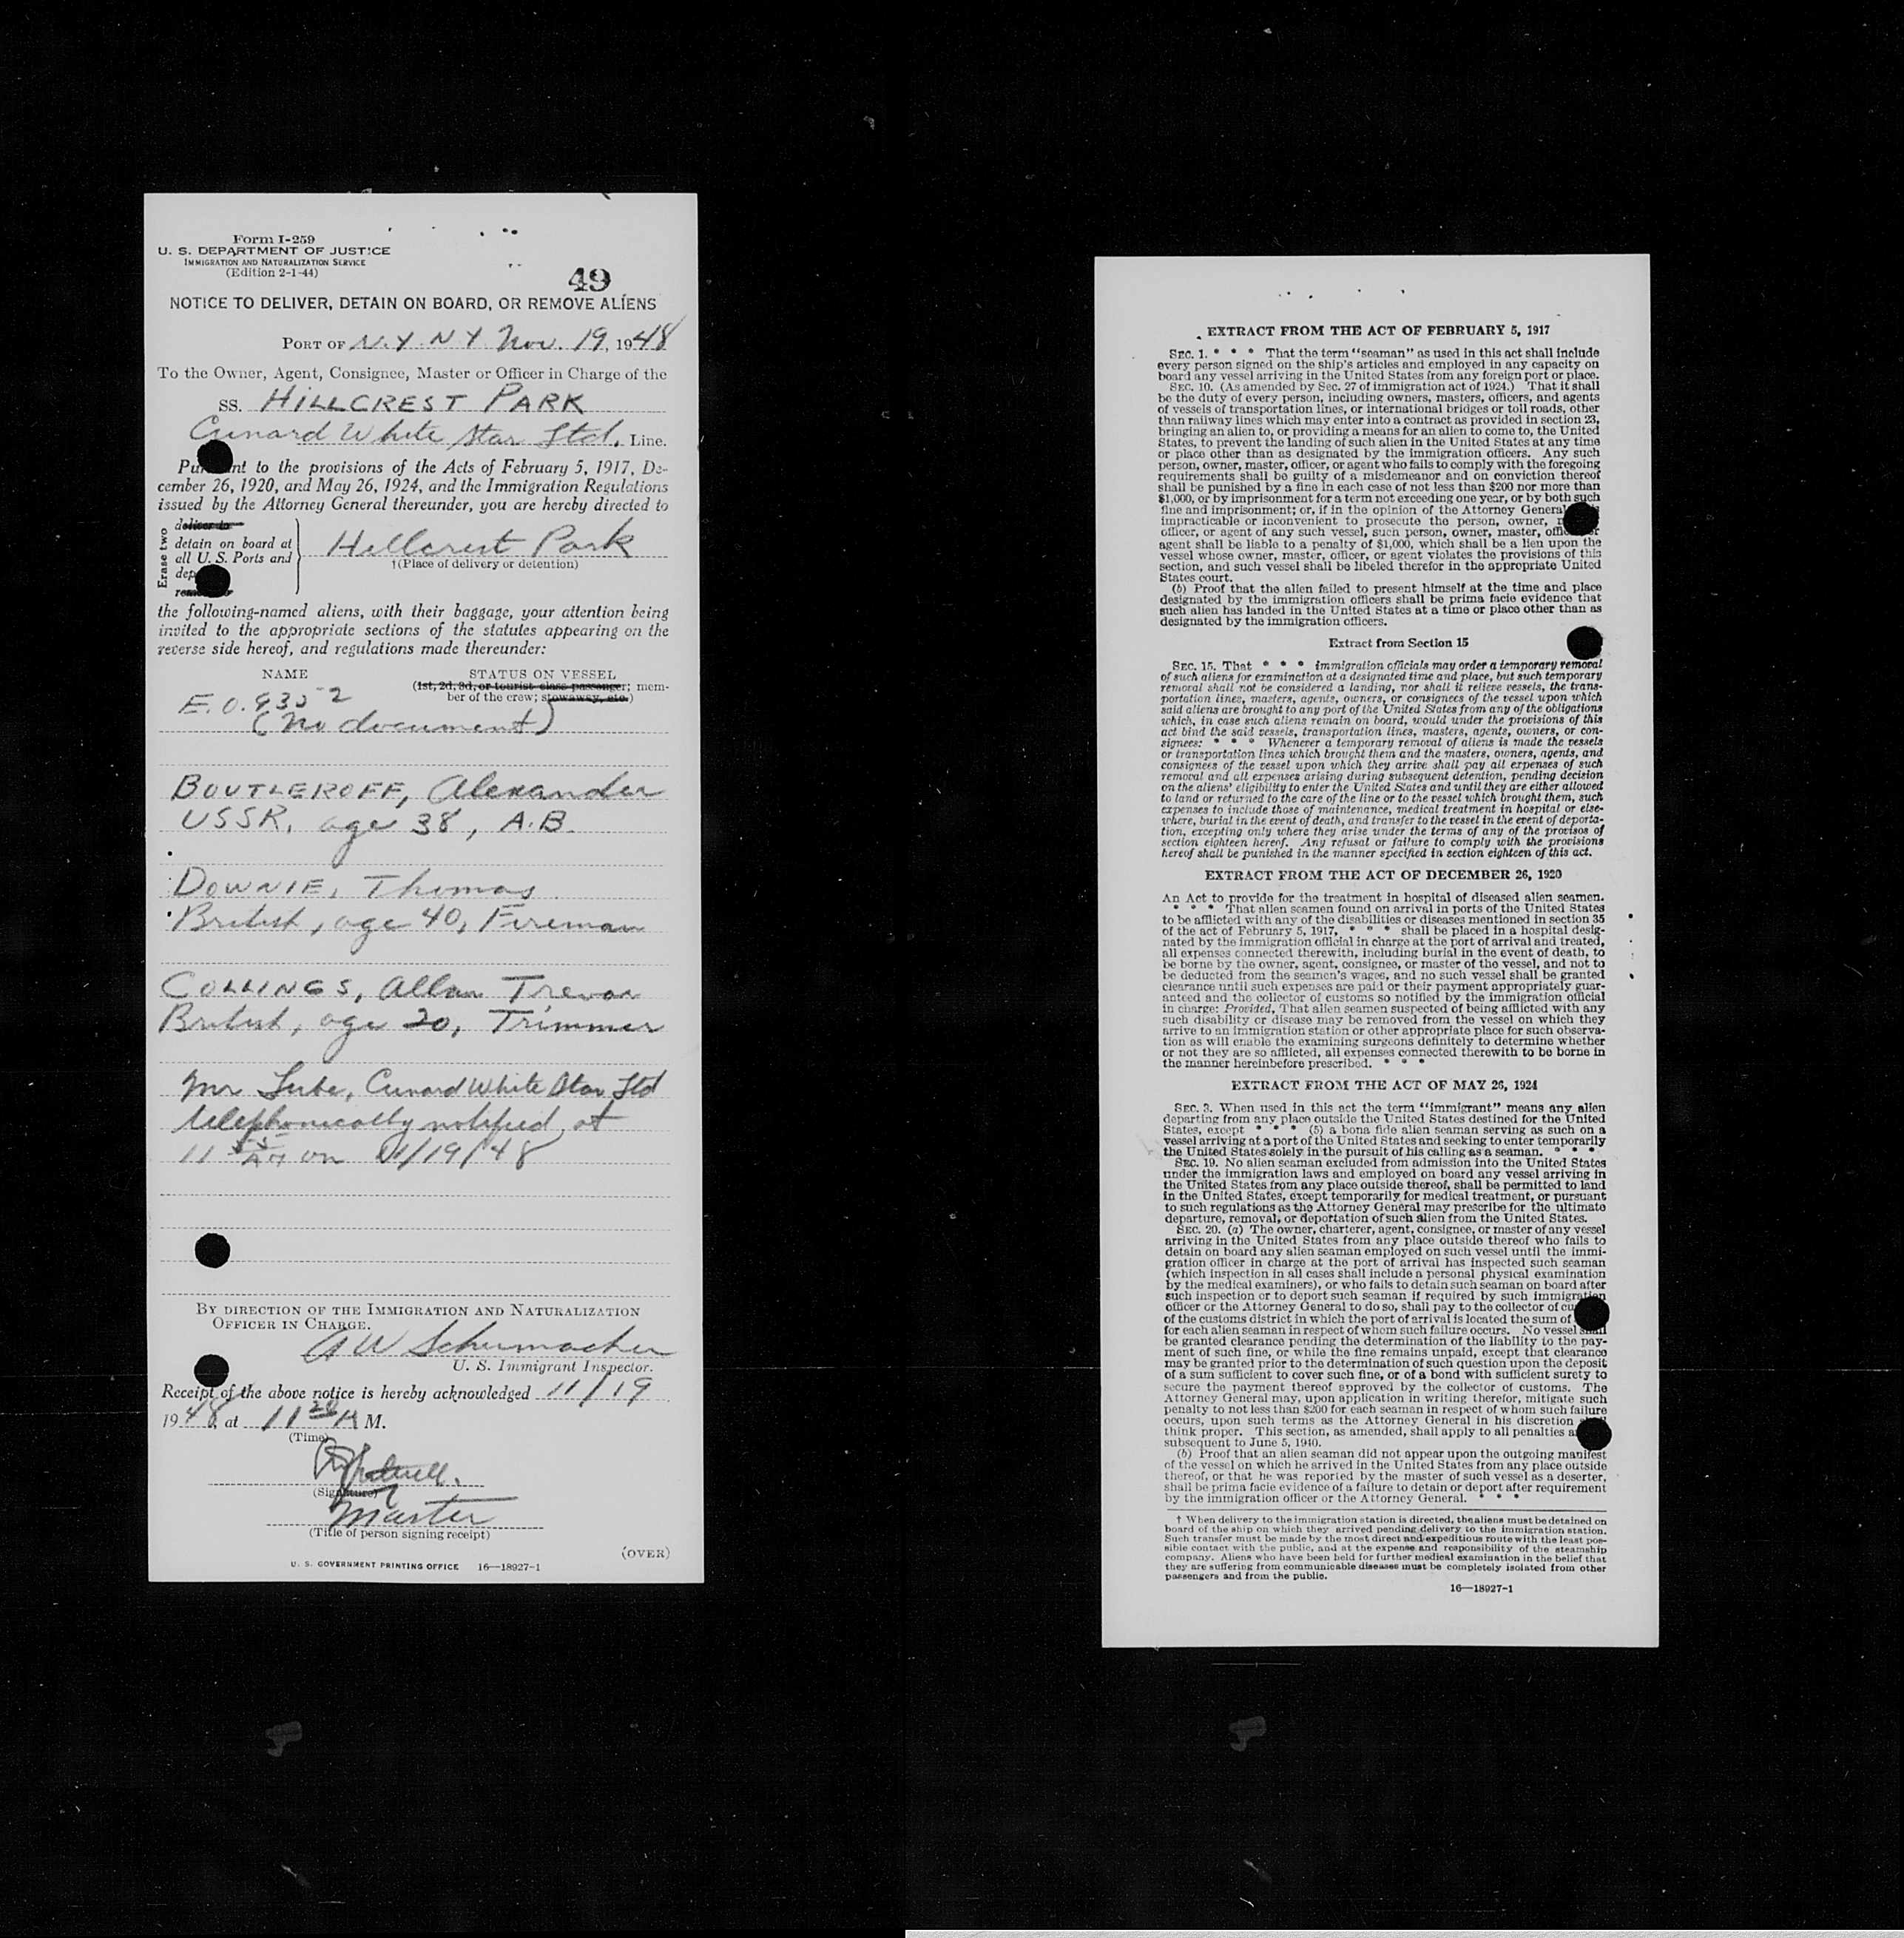 Form I-259
U. S. DEPARTMENT OF JUSTICE
IMMIGRATION AND NATURALIZATION SERVICE
(Edition 2-1-44)
49
NOTICE TO DELIVER, DETAIN ON BOARD, OR REMOVE ALIENS
PORT OF N.Y. N.Y Nov. 19, 1948
To the Owner, Agent, Consignee, Master or Officer in Charge of the
SS. HILLCREST PARK
Cunard White Star Ltd. Line.
Pursuant to the provisions of the Acts of February 5, 1917, De-
cember 26, 1920, and May 26, 1924, and the Immigration Regulations
issued by the Attorney General thereunder, you are hereby directed to
Erase two
deliver to
detain on board at
all U. S. Ports and
dep
remove
Hillcrest Park
†(Place of delivery or detention)
the following-named aliens, with their baggage, your attention being
invited to the appropriate sections of the statutes appearing on the
reverse side hereof, and regulations made thereunder:
NAME STATUS ON VESSEL
(1st, 2d, 3d, or tourist class passenger; mem-
ber of the crew; stowaway, etc.)
E.O. 9352
(No document)
BOUTLEROFF, Alexander
USSR, age 38, A.B.
DOWNIE, Thomas
British, age 40, Fireman
COLLINGS, Allan Trevor
British, age 20, Trimmer
Mr Cunard White Star Ltd
telephonically notified at
11 55 AM on 11/19/48
BY DIRECTION OF THE IMMIGRATION AND NATURALIZATION
OFFICER IN CHARGE.
A W Schumacher
U. S. Immigrant Inspector.
Receipt of the above notice is hereby acknowledged 11/19
1948, at 11 20 A M.
(Time)
(Signature)
Master
(Title of person signing receipt)
(OVER)
U. S. GOVERNMENT PRINTING OFFICE 16—18927-1
EXTRACT FROM THE ACT OF FEBRUARY 5, 1917
SEC. 1. * * * That the term "seaman" as used in this act shall include
every person signed on the ship's articles and employed in any capacity on
board any vessel arriving in the United States from any foreign port or place.
SEC. 10. (As amended by Sec. 27 of immigration act of 1924.) That it shall
be the duty of every person, including owners, masters, officers, and agents
of vessels of transportation lines, or international bridges or toll roads, other
than railway lines which may enter into a contract as provided in section 23,
bringing an alien to, or providing a means for an alien to come to, the United
States, to prevent the landing of such alien in the United States at any time
or place other than as designated by the immigration officers. Any such
person, owner, master, officer, or agent who fails to comply with the foregoing
requirements shall be guilty of a misdemeanor and on conviction thereof
shall be punished by a fine in each case of not less than $200 nor more than
$1,000, or by imprisonment for a term not exceeding one year, or by both such
fine and imprisonment; or, if in the opinion of the Attorney General
impracticable or inconvenient to prosecute the person, owner,
officer, or agent of any such vessel, such person, owner, master, officer, or
agent shall be liable to a penalty of $1,000, which shall be a lien upon the
vessel whose owner, master, officer, or agent violates the provisions of this
section, and such vessel shall be libeled therefor in the appropriate United
States court.
(b) Proof that the alien failed to present himself at the time and place
designated by the immigration officers shall be prima facie evidence that
such alien has landed in the United States at a time or place other than as
designated by the immigration officers.
Extract from Section 15
SEC. 15. That * * * immigration officials may order a temporary removal
of such aliens for examination at a designated time and place, but such temporary
removal shall not be considered a landing, nor shall it relieve vessels, the trans-
portation lines, masters, agents, owners, or consignees of the vessel upon which
said aliens are brought to any port of the United States from any of the obligations
which, in case such aliens remain on board, would under the provisions of this
act bind the said vessels, transportation lines, masters, agents, owners, or con-
signees: * * * Whenever a temporary removal of aliens is made the vessels
or transportation lines which brought them and the masters, owners, agents, and
consignees of the vessel upon which they arrive shall pay all expenses of such
removal and all expenses arising during subsequent detention, pending decision
on the aliens' eligibility to enter the United States and until they are either allowed
to land or returned to the care of the line or to the vessel which brought them, such
expenses to include those of maintenance, medical treatment in hospital or else-
where, burial in the event of death, and transfer to the vessel in the event of deporta-
tion, excepting only where they arise under the terms of any of the provisos of
section eighteen hereof. Any refusal or failure to comply with the provisions
hereof shall be punished in the manner specified in section eighteen of this act.
EXTRACT FROM THE ACT OF DECEMBER 26, 1920
An Act to provide for the treatment in hospital of diseased alien seamen.
* * * That alien seamen found on arrival in ports of the United States
to be afflicted with any of the disabilities or diseases mentioned in section 35
of the act of February 5, 1917, * * * shall be placed in a hospital desig-
nated by the immigration official in charge at the port of arrival and treated,
all expenses connected therewith, including burial in the event of death, to
be borne by the owner, agent, consignee, or master of the vessel, and not to
be deducted from the seamen's wages, and no such vessel shall be granted
clearance until such expenses are paid or their payment appropriately guar-
anteed and the collector of customs so notified by the immigration official
in charge: Provided, That alien seamen suspected of being afflicted with any
such disability or disease may be removed from the vessel on which they
arrive to an immigration station or other appropriate place for such observa-
tion as will enable the examining surgeons definitely to determine whether
or not they are so afflicted, all expenses connected therewith to be borne in
the manner hereinbefore prescribed. * * *
EXTRACT FROM THE ACT OF MAY 26, 1924
SEC. 3. When used in this act the term "immigrant" means any alien
departing from any place outside the United States destined for the United
States, except * * * (5) a bona fide alien seaman serving as such on a
vessel arriving at a port of the United States and seeking to enter temporarily
the United States solely in the pursuit of his calling as a seaman. * * *
SEC. 19. No alien seaman excluded from admission into the United States
under the immigration laws and employed on board any vessel arriving in
the United States from any place outside thereof, shall be permitted to land
in the United States, except temporarily for medical treatment, or pursuant
to such regulations as the Attorney General may prescribe for the ultimate
departure, removal, or deportation of such alien from the United States.
SEC. 20. (a) The owner, charterer, agent, consignee, or master of any vessel
arriving in the United States from any place outside thereof who fails to
detain on board any alien seaman employed on such vessel until the immi-
gration officer in charge at the port of arrival has inspected such seaman
(which inspection in all cases shall include a personal physical examination
by the medical examiners), or who fails to detain such seaman on board after
such inspection or to deport such seaman if required by such immigration
officer or the Attorney General to do so, shall pay to the collector of cu
of the customs district in which the port of arrival is located the sum of
for each alien seaman in respect of whom such failure occurs. No vessel shall
be granted clearance pending the determination of the liability to the pay-
ment of such fine, or while the fine remains unpaid, except that clearance
may be granted prior to the determination of such question upon the deposit
of a sum sufficient to cover such fine, or of a bond with sufficient surety to
secure the payment thereof approved by the collector of customs. The
Attorney General may, upon application in writing therefor, mitigate such
penalty to not less than $200 for each seaman in respect of whom such failure
occurs, upon such terms as the Attorney General in his discretion shall
think proper. This section, as amended, shall apply to all penalties a
subsequent to June 5, 1940.
(b) Proof that an alien seaman did not appear upon the outgoing manifest
of the vessel on which he arrived in the United States from any place outside
thereof, or that he was reported by the master of such vessel as a deserter,
shall be prima facie evidence of a failure to detain or deport after requirement
by the immigration officer or the Attorney General. * * *
† When delivery to the immigration station is directed, the aliens must be detained on
board of the ship on which they arrived pending delivery to the immigration station.
Such transfer must be made by the most direct and expeditious route with the least pos-
sible contact with the public, and at the expense and responsibility of the steamship
company. Aliens who have been held for further medical examination in the belief that
they are suffering from communicable diseases must be completely isolated from other
passengers and from the public.
16—18927-1